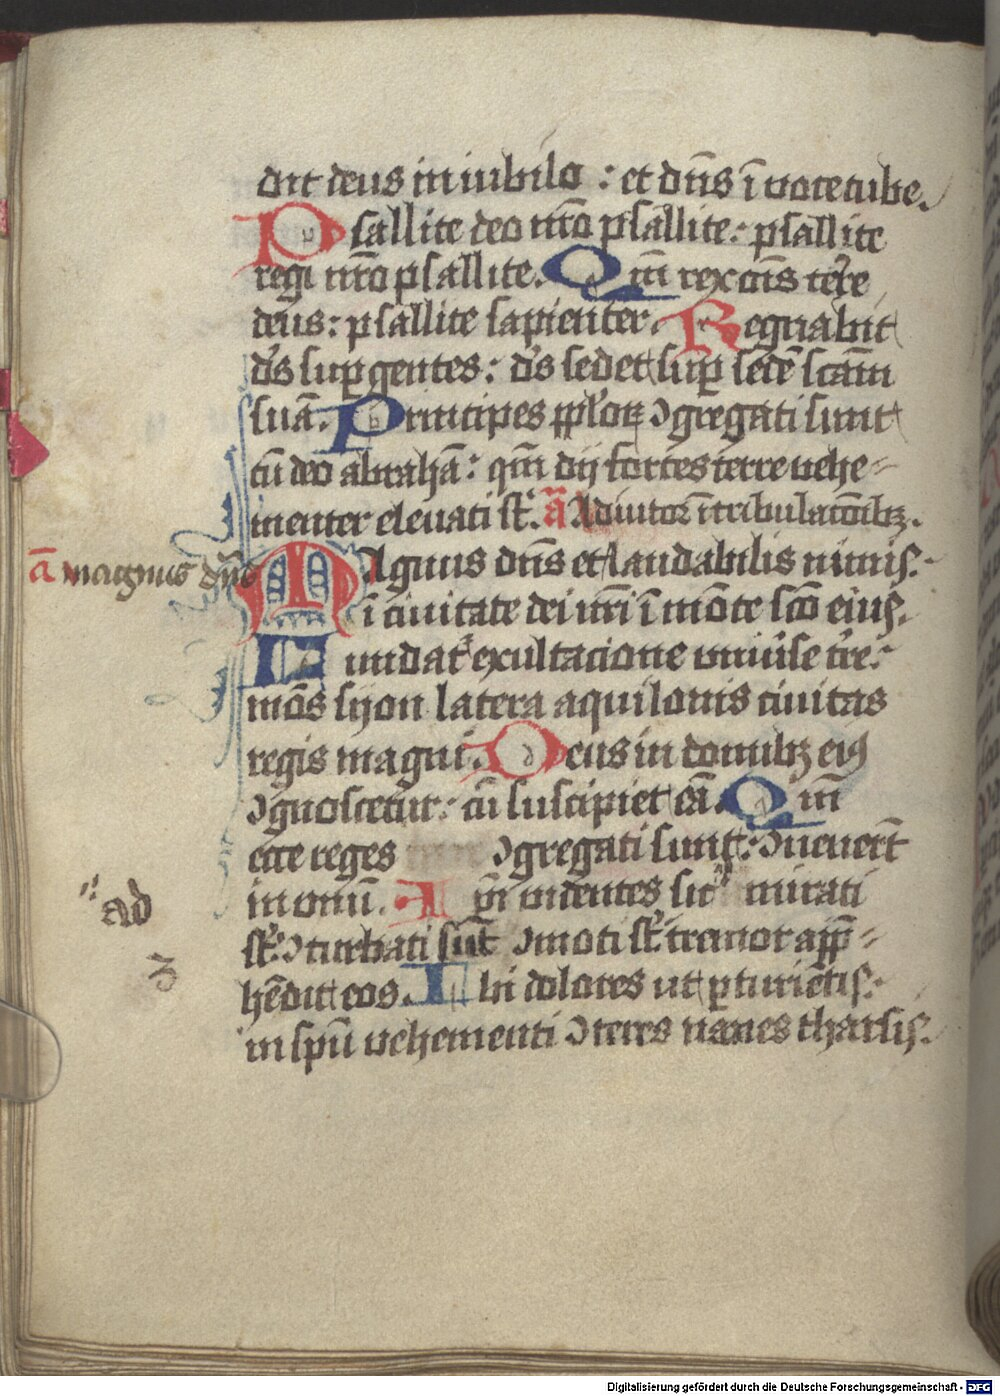 dit deus in iubilo : et dn̄s ī voce tube.
Psallite deo nr̄o psallite : psallite
regi nr̄o psallite. Qm̄ rex om̄s terre
deus : psallite sapienter. Regnabit
ds̄ sup gentes : ds̄ sedet sup sedē scām
suā. Principes pplōꝝ ꝯgregati sunt
cū deo abrahā : qm̄ dij fortes terre vehe=
menter eleuati st̄. ā Adiutor ī tribulacōibꝫ.
ā magnus dn̄s
Magnus dn̄s et laudabilis nimis :
ī ciuitate dei nr̄i ī monte scō eius.
Fundat᷑ exultacione vniūse tr̄e :
mōs syon latera aquilonis ciuitas
regis magni. Deus in domibꝫ eiꝰ
ꝯgnoscetur : cū suscipiet eā. Qm̄
ecce reges ꝯgregati sunt : ꝯuenert̄
in vnū. Ipī videntes sic mirati
st̄ : ꝯturbati sūt ꝯmoti st̄ tremor app̄=
hēdit eos. Ibi dolores ut pturiētis :
in spū vehementi ꝯteres naues tharsis.
ad
3
Digitalisierung gefördert durch die Deutsche Forschungsgemeinschaft - DFG